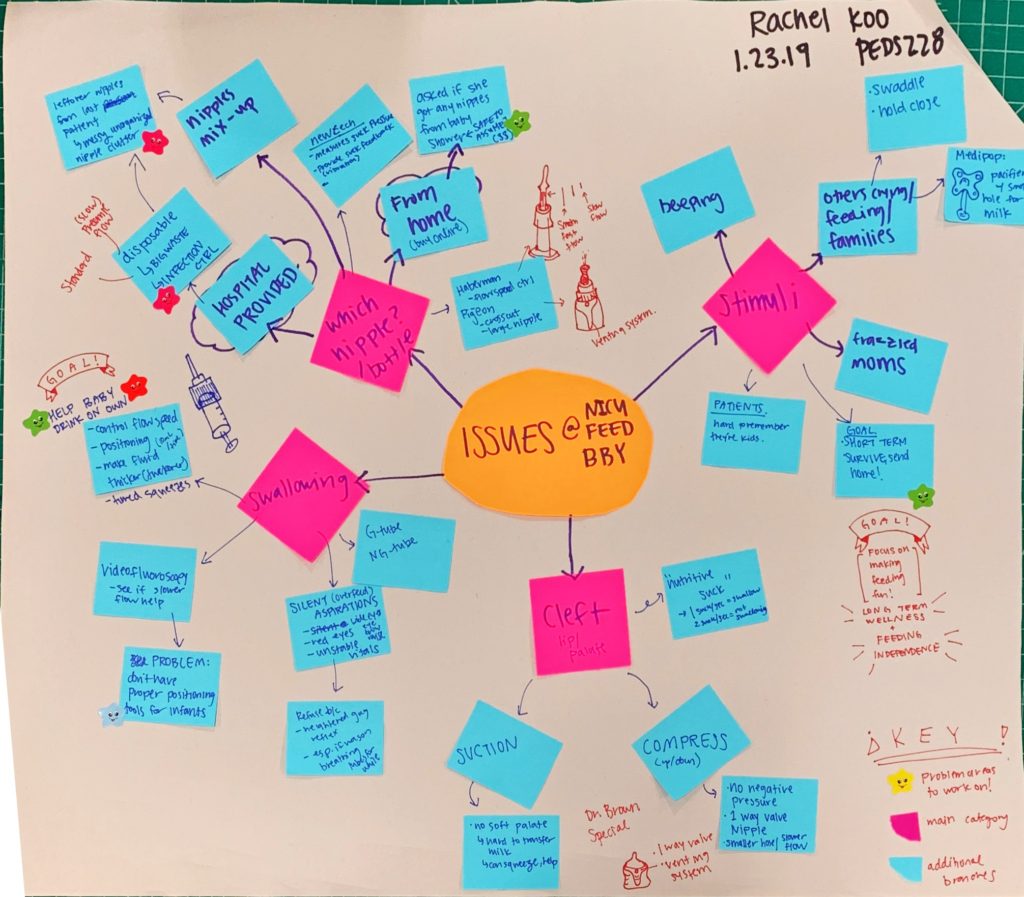 Rachel Koo
1.23.19 PEDS228
ISSUES @ NICU
FEED
BBY
which
nipple?
/bottle
nipples
mix-up
leftover nipples
from last
patient
↳ messy unorganized
nipple clutter
disposable
↳ BIG WASTE
↳ INFECTION
CTRL
(SLOW)
Preemie
flow
Standard
HOSPITAL
PROVIDED
new tech
- measures suck pressure
- provide suck feedback
(vibration)
From
home
(buy online)
asked if she
got any nipples
from baby
shower
($$)
Haberman
- flow speed ctrl
Pigeon
- cross cut
- large nipple
Slow
flow
fast
flow
venting system.
Stimuli
beeping
others crying/
feeding/
families
• swaddle
• hold close
Medipop:
pacifier
hole for
milk
frazzled
moms
PATIENTS
hard remember
they're kids.
GOAL
• SHORT TERM
SURVIVE, send
home!
GOAL!
FOCUS ON
making
feeding
fun!
LONG TERM
WELLNESS
+
FEEDING
INDEPENDENCE
Swallowing
GOAL!
HELP BABY
DRINK ON OWN
- control flow speed
- positioning
- make fluid
thicker (thickener)
- timed squeezes
videofluoroscopy
- see if slower
flow help
PROBLEM:
don't have
proper positioning
tools for infants
G-tube
NG-tube
SILENT (overfeed)
ASPIRATIONS
- red eyes
- unstable
vitals
Refuse b/c
- heightened gag
reflex
breathing
while
Cleft
lip/
palate
"nutritive
suck"
→ 1 suck/sec = swallow
2 suck/sec = not
swallowing
SUCTION
• no soft palate
↳ hard to transfer
milk
↳ can squeeze, help
COMPRESS
(up/down)
• No negative
pressure
• 1 way valve
Nipple
• smaller hole/slower
flow
Dr. Brown
Special
• 1 way valve
• venting
system
KEY!
problem areas
to work on!
main category
additional
branches